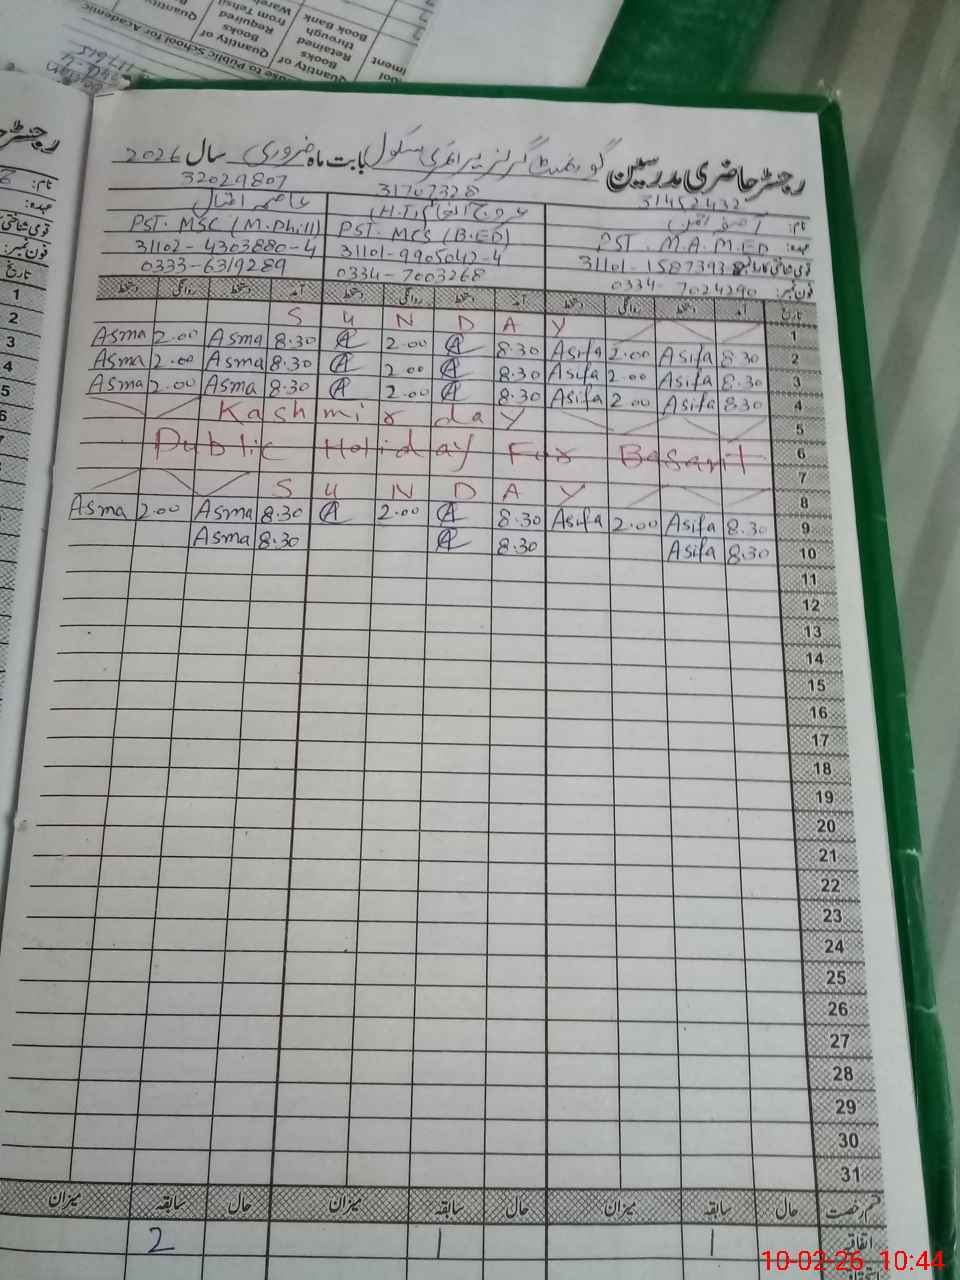 ol
iment
Quantity of
Books
Retained
through
Book Bank
Quantity of
Books
Required
from Tehsil
Quantity
use to Public School for Academic
رجسٹر حاضری مدرسین گورنمنٹ گرلز پرائمری سکول بابت ماہ فروری سال 2026
31452432 31707328 32029807
نام: عاصمہ
عہدہ: PST. M.A. M.ED PST. MCS (B.ED) PST. MSC (M.Phill)
قومی شناختی کارڈ نمبر 31101-1587393 31101-9905042-4 31102-4303880-4
فون نمبر: 0334-7024290 0334-7003268 0333-6319289
تاریخ آمد دستخط روانگی دستخط آمد دستخط روانگی دستخط آمد دستخط روانگی دستخط
1 SUNDAY
2 8.30 Asifa 2.00 Asifa 8.30 2.00 8.30 Asma 2.00 Asma
3 8.30 Asifa 2.00 Asifa 8.30 2.00 8.30 Asma 2.00 Asma
4 8.30 Asifa 2.00 Asifa 8.30 2.00 8.30 Asma 2.00 Asma
5 Kashmir day
6 Public Holiday For Basant
7
8 SUNDAY
9 8.30 Asifa 2.00 Asifa 8.30 2.00 8.30 Asma 2.00 Asma
10 8.30 Asifa 8.30 8.30 Asma
11
12
13
14
15
16
17
18
19
20
21
22
23
24
25
26
27
28
29
30
31
قسم رخصت حال سابقہ میزان حال سابقہ میزان حال سابقہ میزان
اتفاقیہ 1 1 2
10-02-26 10:44